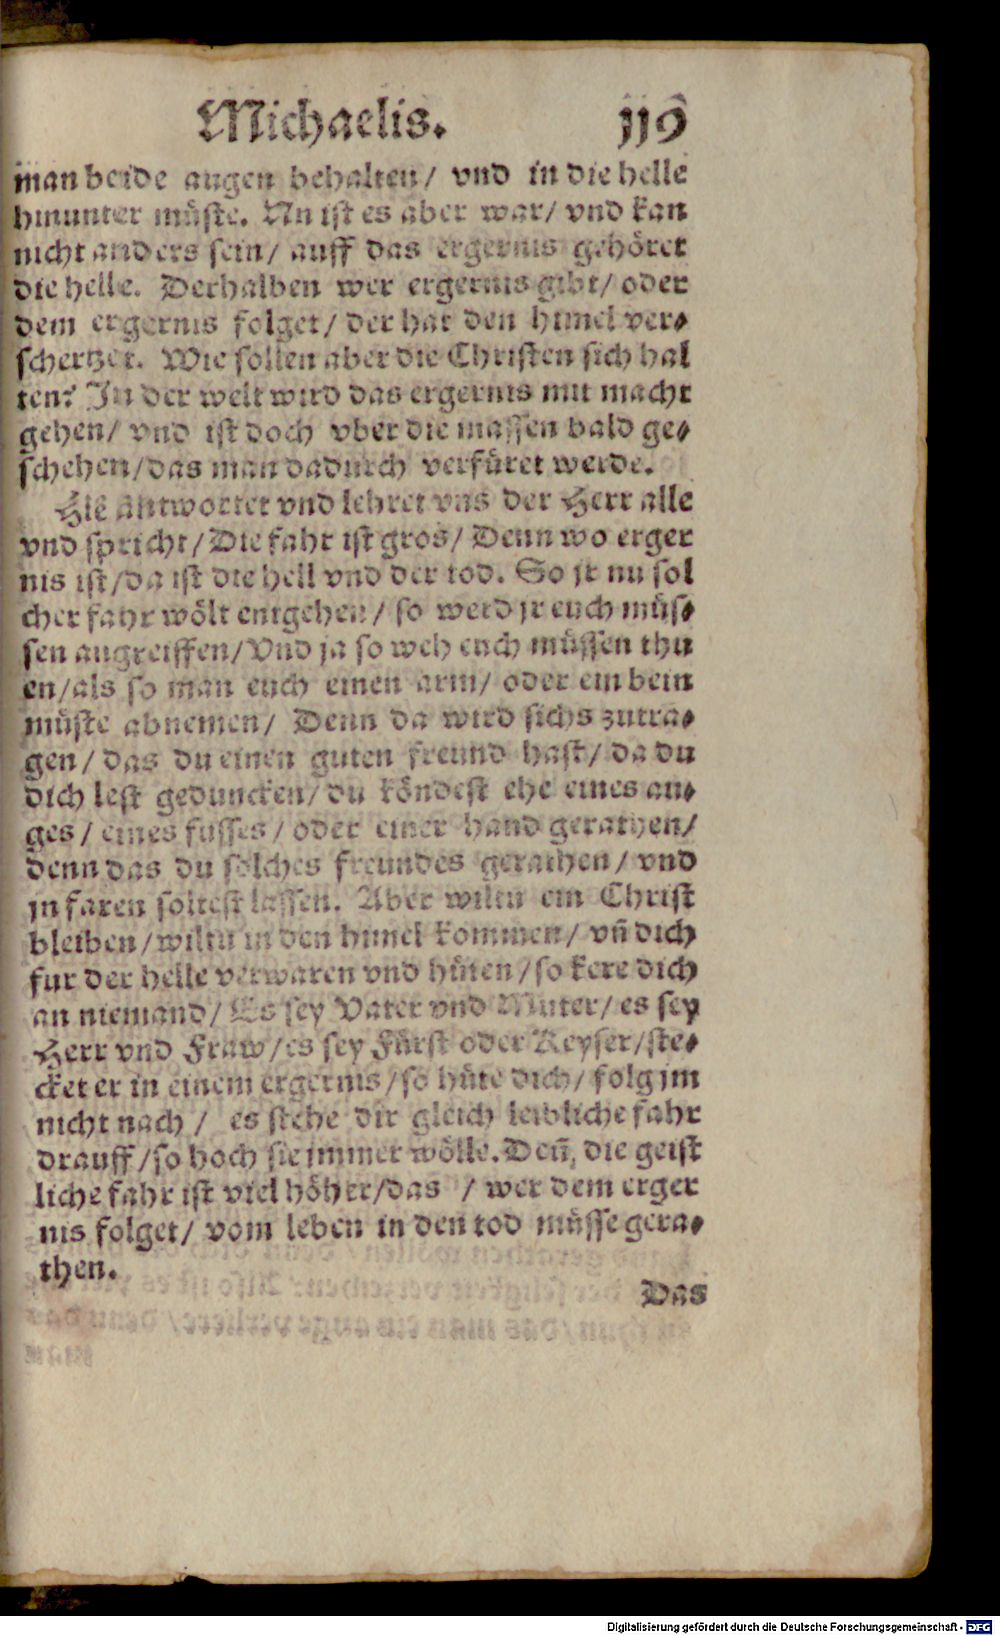 Michaelis. 119
man beide augen behalten/ vnd in die helle
hinunter müste. Nu ist es aber war/ vnd kan
nicht anders sein/ auff das ergernis gehöret
die helle. Derhalben wer ergernis gibt/ oder
dem ergernis folget/ der hat den himel ver-
schertzet. Wie sollen aber die Christen sich hal
ten? In der welt wird das ergernis mit macht
gehen/ vnd ist doch vber die massen bald ge-
schehen/das man dadurch verfüret werde.
Hie antwortet vnd lehret vns der Herr alle
vnd spricht/Die fahr ist gros/ Denn wo erger
nis ist/da ist die hell vnd der tod. So jr nu sol
cher fahr wölt entgehen/ so werd jr euch müs-
sen angreiffen/Vnd ja so weh euch müssen thu
en/als so man euch einen arm/ oder ein bein
müste abnemen/ Denn da wird sichs zutra-
gen/ das du einen guten freund hast/ da du
dich lest geduncken/ du köndest ehe eines au-
ges/ eines fusses/ oder einer hand gerathen/
denn das du solches freundes gerathen/ vnd
jn faren soltest lassen. Aber wiltu ein Christ
bleiben/wiltu in den himel kommen/ vñ dich
fur der helle verwaren vnd hüten/so kere dich
an niemand/ Es sey Vater vnd Muter/ es sey
Herr vnd Fraw/es sey Fürst oder Keyser/ste-
cket er in einem ergernis/so hüte dich/ folg jm
nicht nach/ es stehe dir gleich leibliche fahr
drauff/so hoch sie jmmer wölle. Deñ, die geist
liche fahr ist viel höher/das / wer dem erger
nis folget/ vom leben in den tod müsse gera-
then.
Das
Digitalisierung gefördert durch die Deutsche Forschungsgemeinschaft - DFG